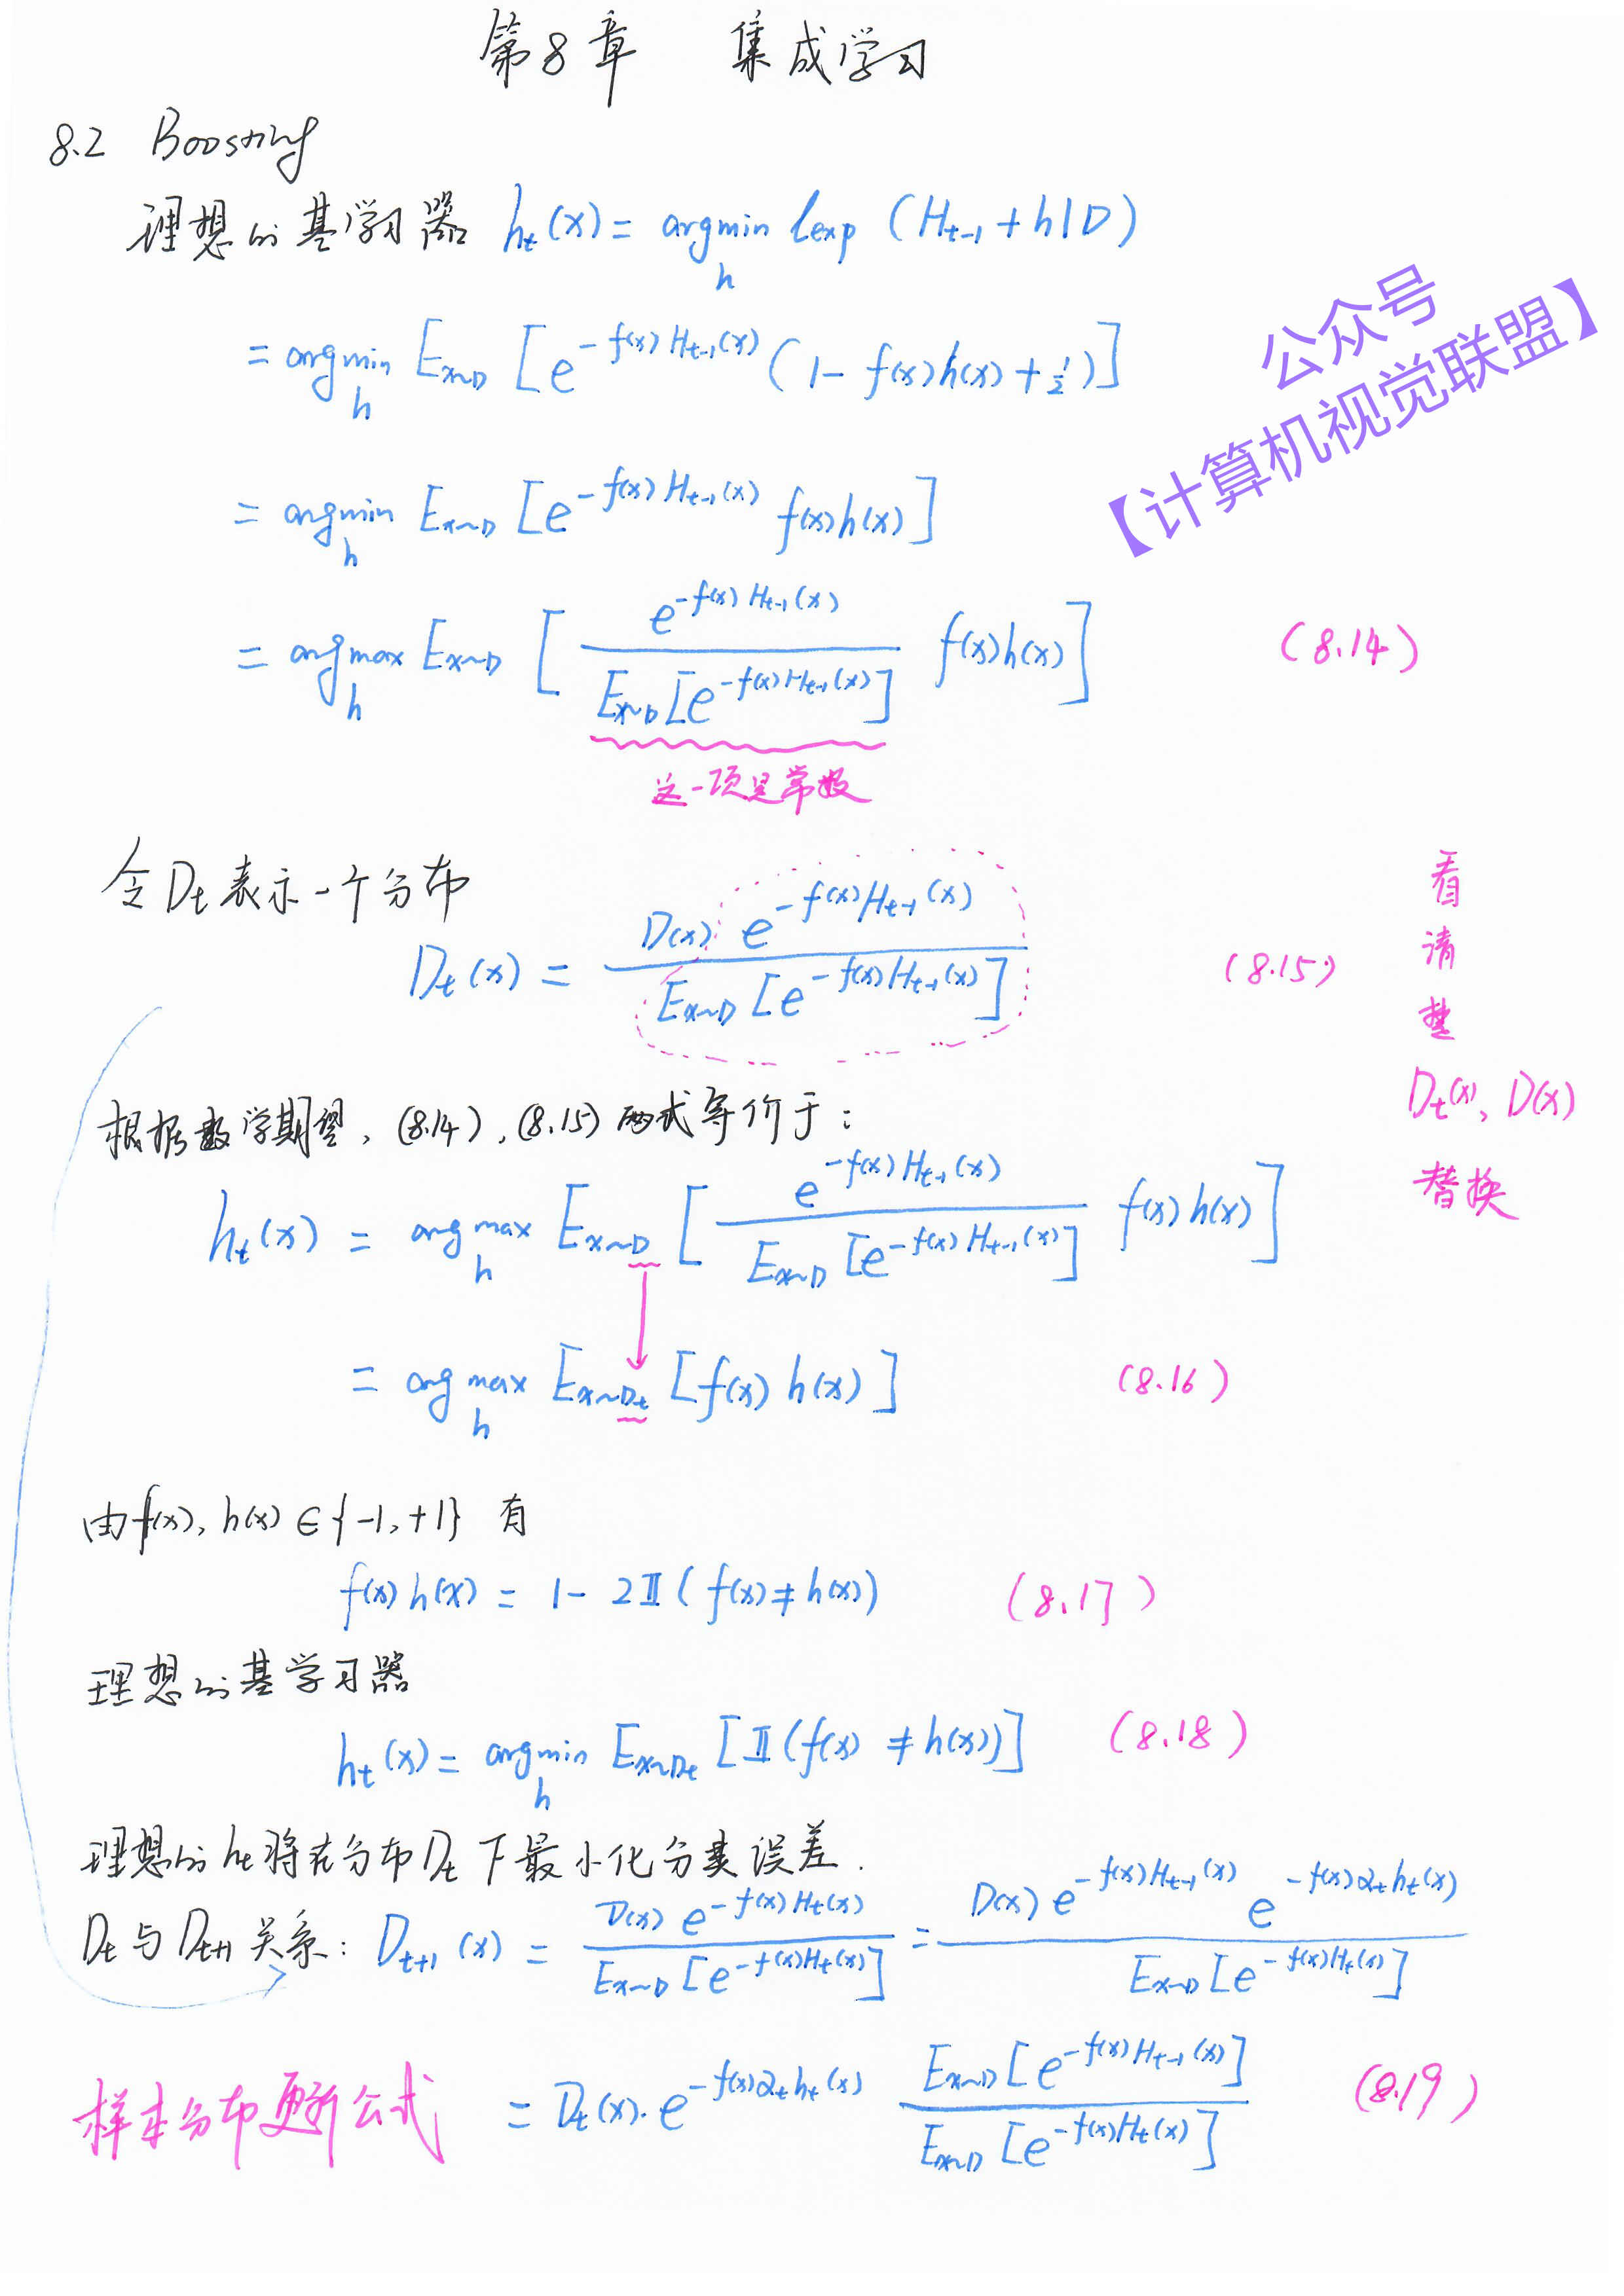 第8章 集成学习
8.2 Boosting
理想的基学习器 hₜ(x) = argmin_h ℓexp (Hₜ₋₁ + h|D)
公众号
【计算机视觉联盟】
= argmin_h E_{x~D} [e^{-f(x)Hₜ₋₁(x)} (1 - f(x)h(x) + ½)]
= argmin_h E_{x~D} [e^{-f(x)Hₜ₋₁(x)} f(x)h(x)]
= argmax_h E_{x~D} [ e^{-f(x)Hₜ₋₁(x)} / E_{x~D}[e^{-f(x)Hₜ₋₁(x)}] f(x)h(x) ] (8.14)
这一项是常数
令Dₜ表示一个分布
Dₜ(x) = D(x) e^{-f(x)Hₜ₋₁(x)} / E_{x~D}[e^{-f(x)Hₜ₋₁(x)}] (8.15)
看
清
楚
Dₜ(x), D(x)
替换
根据数学期望, (8.14), (8.15) 两式等价于:
hₜ(x) = argmax_h E_{x~D} [ e^{-f(x)Hₜ₋₁(x)} / E_{x~D}[e^{-f(x)Hₜ₋₁(x)}] f(x)h(x) ]
= argmax_h E_{x~Dₜ} [f(x)h(x)] (8.16)
由f(x), h(x)∈{-1,+1} 有
f(x)h(x) = 1 - 2𝕀(f(x)≠h(x)) (8.17)
理想的基学习器
hₜ(x) = argmin_h E_{x~Dₜ} [𝕀(f(x)≠h(x))] (8.18)
理想的hₜ将在分布Dₜ下最小化分类误差.
Dₜ与Dₜ₊₁关系: Dₜ₊₁(x) = D(x) e^{-f(x)Hₜ(x)} / E_{x~D}[e^{-f(x)Hₜ(x)}] = D(x) e^{-f(x)Hₜ₋₁(x)} e^{-f(x)αₜhₜ(x)} / E_{x~D}[e^{-f(x)Hₜ(x)}]
样本分布更新公式 = Dₜ(x)·e^{-f(x)αₜhₜ(x)} E_{x~D}[e^{-f(x)Hₜ₋₁(x)}] / E_{x~D}[e^{-f(x)Hₜ(x)}] (8.19)